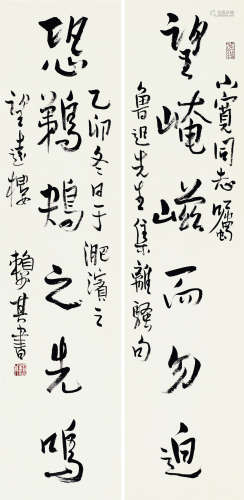 望崦嵫而勿迫
小寬同志囑
魯迅先生集離騷句
恐鵜鴂之先鳴
乙卯冬日于淝濱之
望遠樓
賴少其書